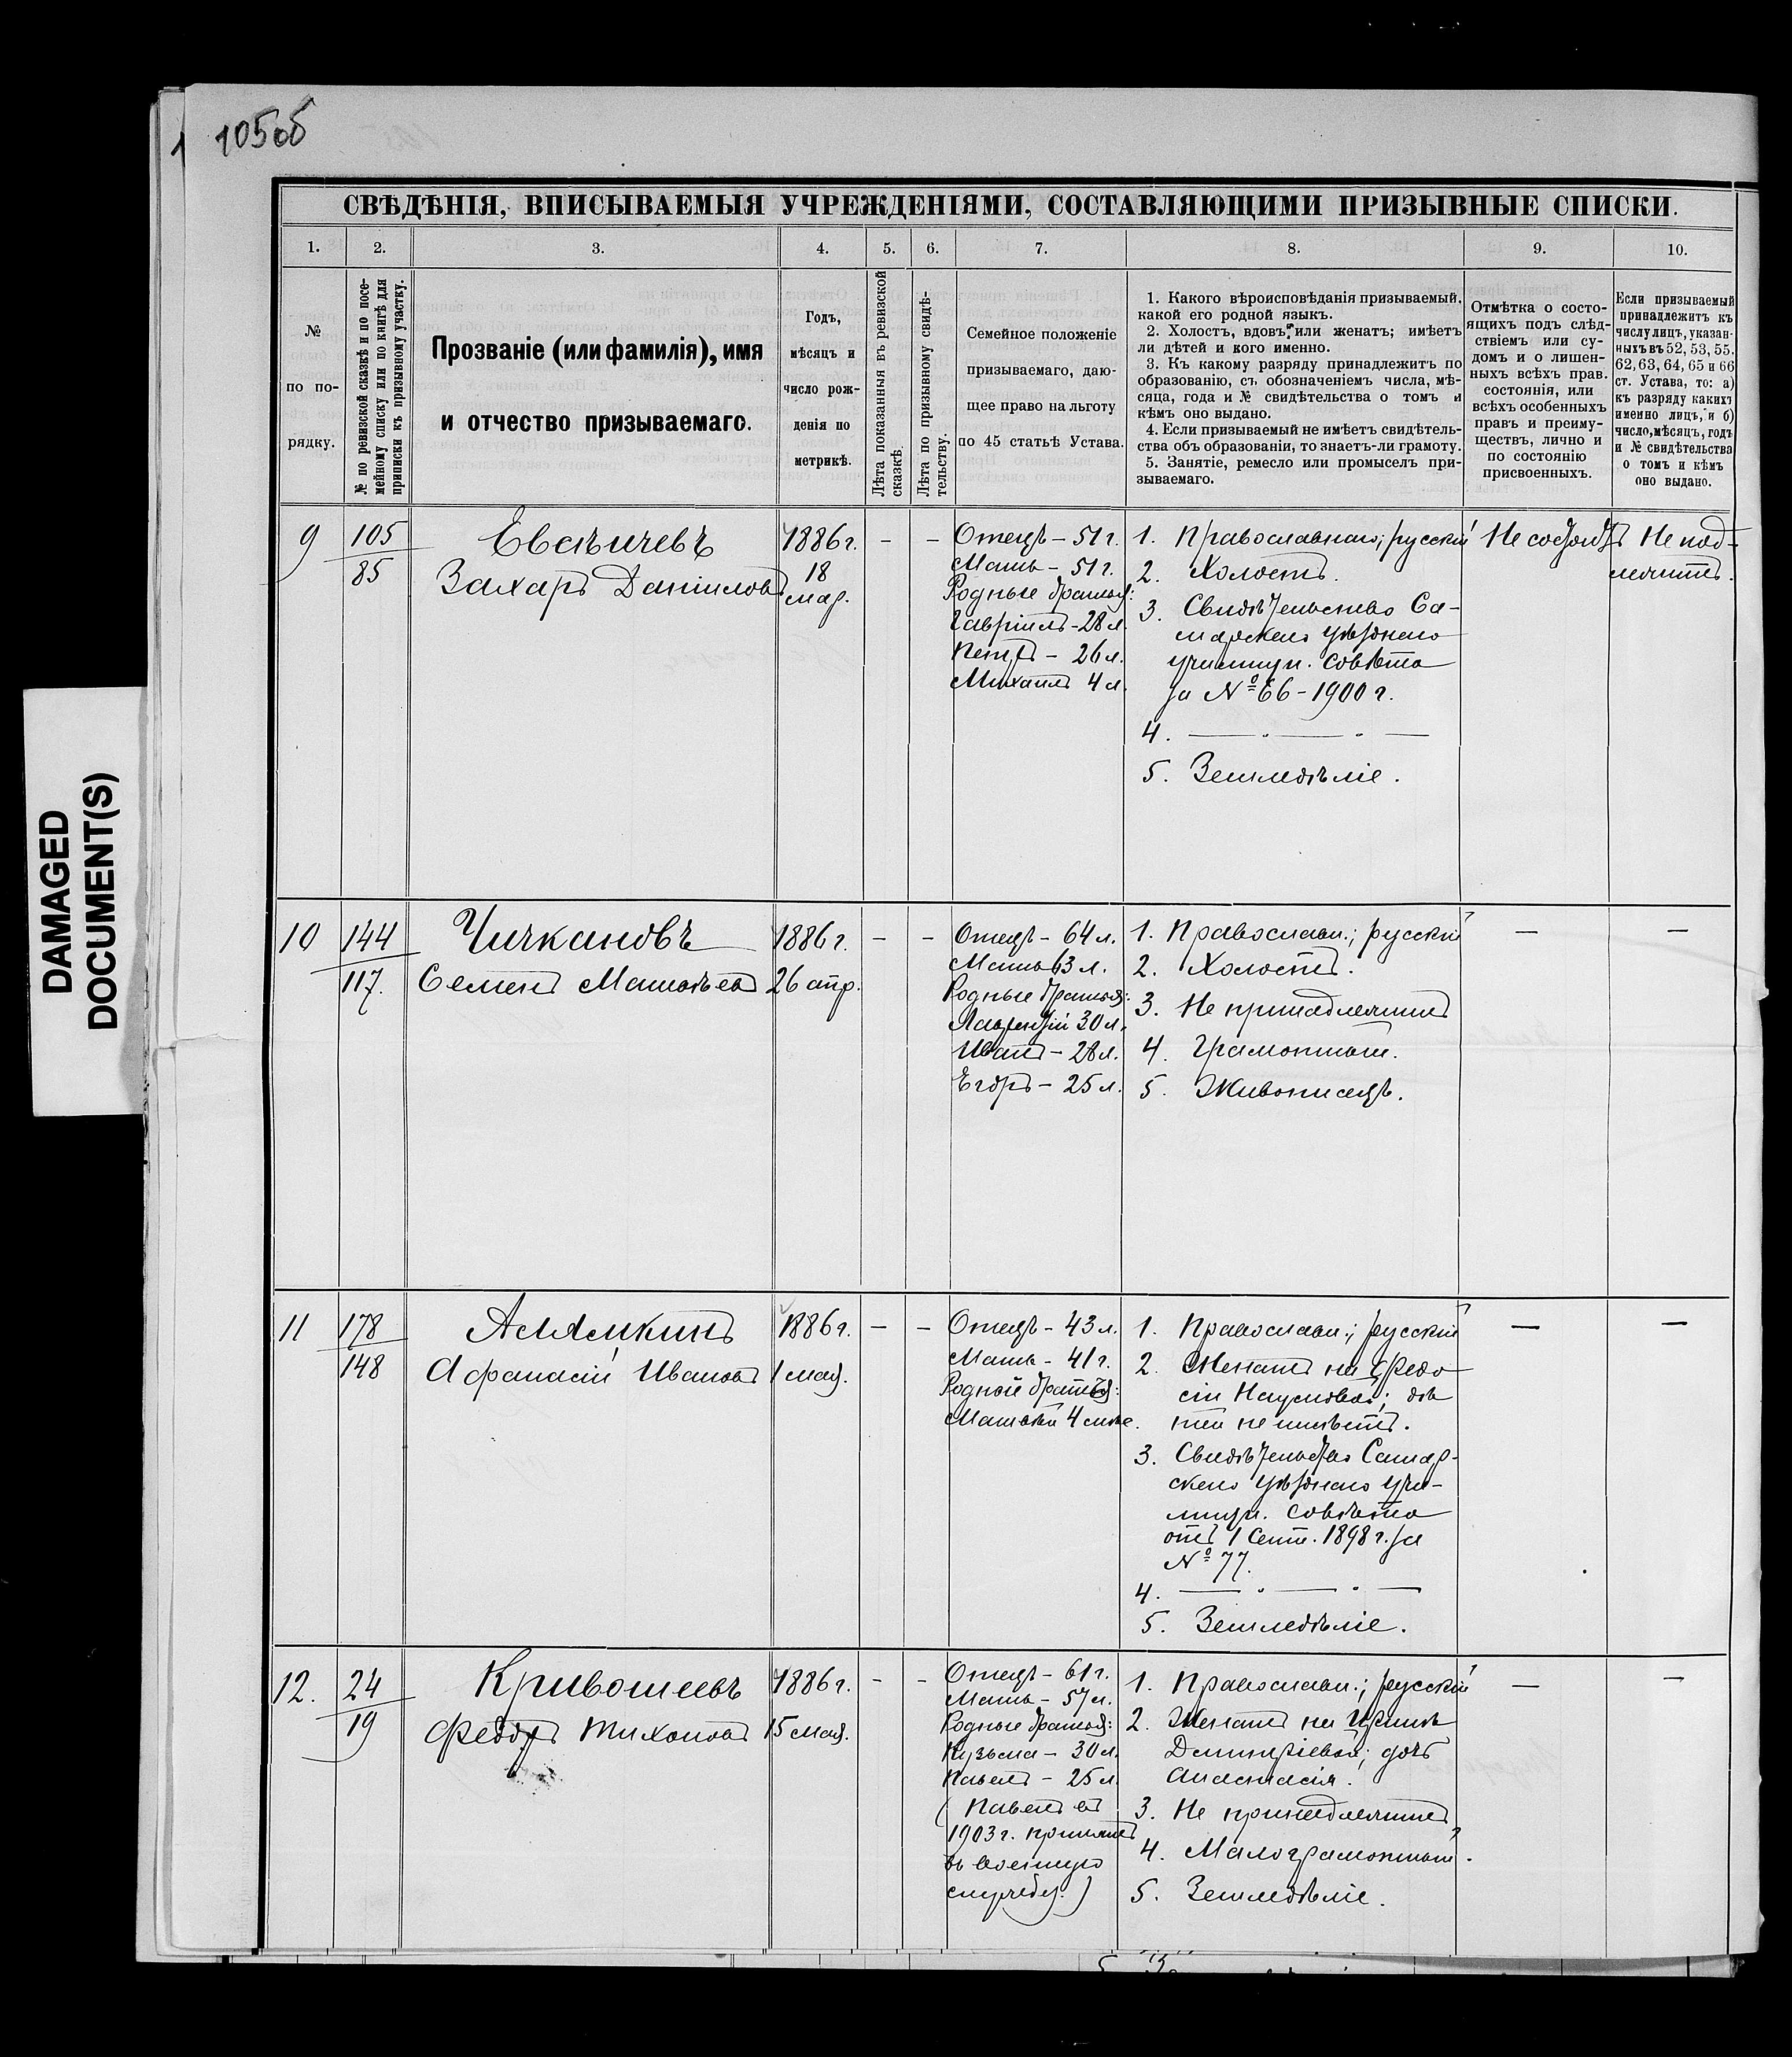 105об
СВѢДѢНІЯ, ВПИСЫВАЕМЫЯ УЧРЕЖДЕНІЯМИ, СОСТАВЛЯЮЩИМИ ПРИЗЫВНЫЕ СПИСКИ.
1. 2. 3. 4. 5. 6. 7. 8. 9. 10.
№
по по-
рядку.
№ по ревизской сказкѣ и по посе-
мейному списку или по книгѣ для
приписки къ призывному участку.
Прозваніе (или фамилія), имя
и отчество призываемаго.
Годъ,
мѣсяцъ и
число рож-
денія по
метрикѣ.
Лѣта показанныя въ ревизской
сказкѣ.
Лѣта по призывному свидѣ-
тельству.
Семейное положеніе
призываемаго, даю-
щее право на льготу
по 45 статьѣ Устава.
1. Какого вѣроисповѣданія призываемый,
какой его родной языкъ.
2. Холостъ, вдовъ, или женатъ; имѣетъ
ли дѣтей и кого именно.
3. Къ какому разряду принадлежитъ по
образованію, съ обозначеніемъ числа, мѣ-
сяца, года и № свидѣтельства о томъ и
кѣмъ оно выдано.
4. Если призываемый не имѣетъ свидѣтель-
ства объ образованіи, то знаетъ-ли грамоту.
5. Занятіе, ремесло или промыселъ при-
зываемаго.
Отмѣтка о состо-
ящихъ подъ слѣд-
ствіемъ или су-
домъ и о лишен-
ныхъ всѣхъ прав.
состоянія, или
всѣхъ особенныхъ
правъ и преиму-
ществъ, лично и
по состоянію
присвоенныхъ.
Если призываемый
принадлежитъ къ
числу лицъ, указан-
ныхъ въ 52, 53, 55.
62, 63, 64, 65 и 66
ст. Устава, то: а)
къ разряду какихъ
именно лицъ, и б)
число, мѣсяцъ, годъ
и № свидѣтельства
о томъ и кѣмъ
оно выдано.
9
105
85
Евсѣичевъ
Захаръ Даниловъ
1886 г.
18
мар.
-
-
Отецъ - 51 г.
Мать - 51 г.
Родные братья:
Гавріилъ - 28 л.
Петръ - 26 л.
Михаилъ 4 л.
1. Православнаго; русскій
2. Холостъ.
3. Свидѣтельство Са-
марскаго уѣзднаго
училищн. совѣта
за № 66 - 1900 г.
4. — " — " —
5. Земледѣліе.
Не состоитъ
Не под-
лежитъ.
10
144
117.
Чичкановъ
Семенъ Матвѣевъ
1886 г.
26 апр.
-
-
Отецъ - 64 л.
Мать 63 л.
Родные братья:
Лаврентій 30 л.
Иванъ - 28 л.
Егоръ - 25 л.
1. Православн.; русскій
2. Холостъ.
3. Не принадлежитъ
4. Грамотный.
5. Живописецъ.
—
—
11
178
148
Афанасій Ивановъ
1886 г.
1 мая.
-
-
Отецъ - 43 л.
Мать - 41 г.
Родной братъ:
Матвѣй 4 мѣс.
1. Православн.; русскій
2. Женатъ на Федо
сіи Наумовой; дѣ
тей не имѣетъ.
3. Свидѣтельство Самар-
скаго уѣзднаго учи-
лищн. совѣта
отъ 1 Сент. 1898 г. за
№ 77.
4. — " — " —
5. Земледѣліе.
—
—
12.
24
19
Кривошеевъ
Федоръ Тихоновъ
1886 г.
15 мая.
-
-
Отецъ - 61 г.
Мать - 57 л.
Родные братья:
Кузьма - 30 л.
Павелъ - 25 л.
(Павелъ въ
1903 г. принятъ
въ военную
службу.)
1. Православн.; русскій
2. Женатъ на Иринѣ
Дмитріевой; дочь
Анастасія.
3. Не принадлежитъ
4. Малограмотный.
5. Земледѣліе.
—
—
DAMAGED
DOCUMENT(S)